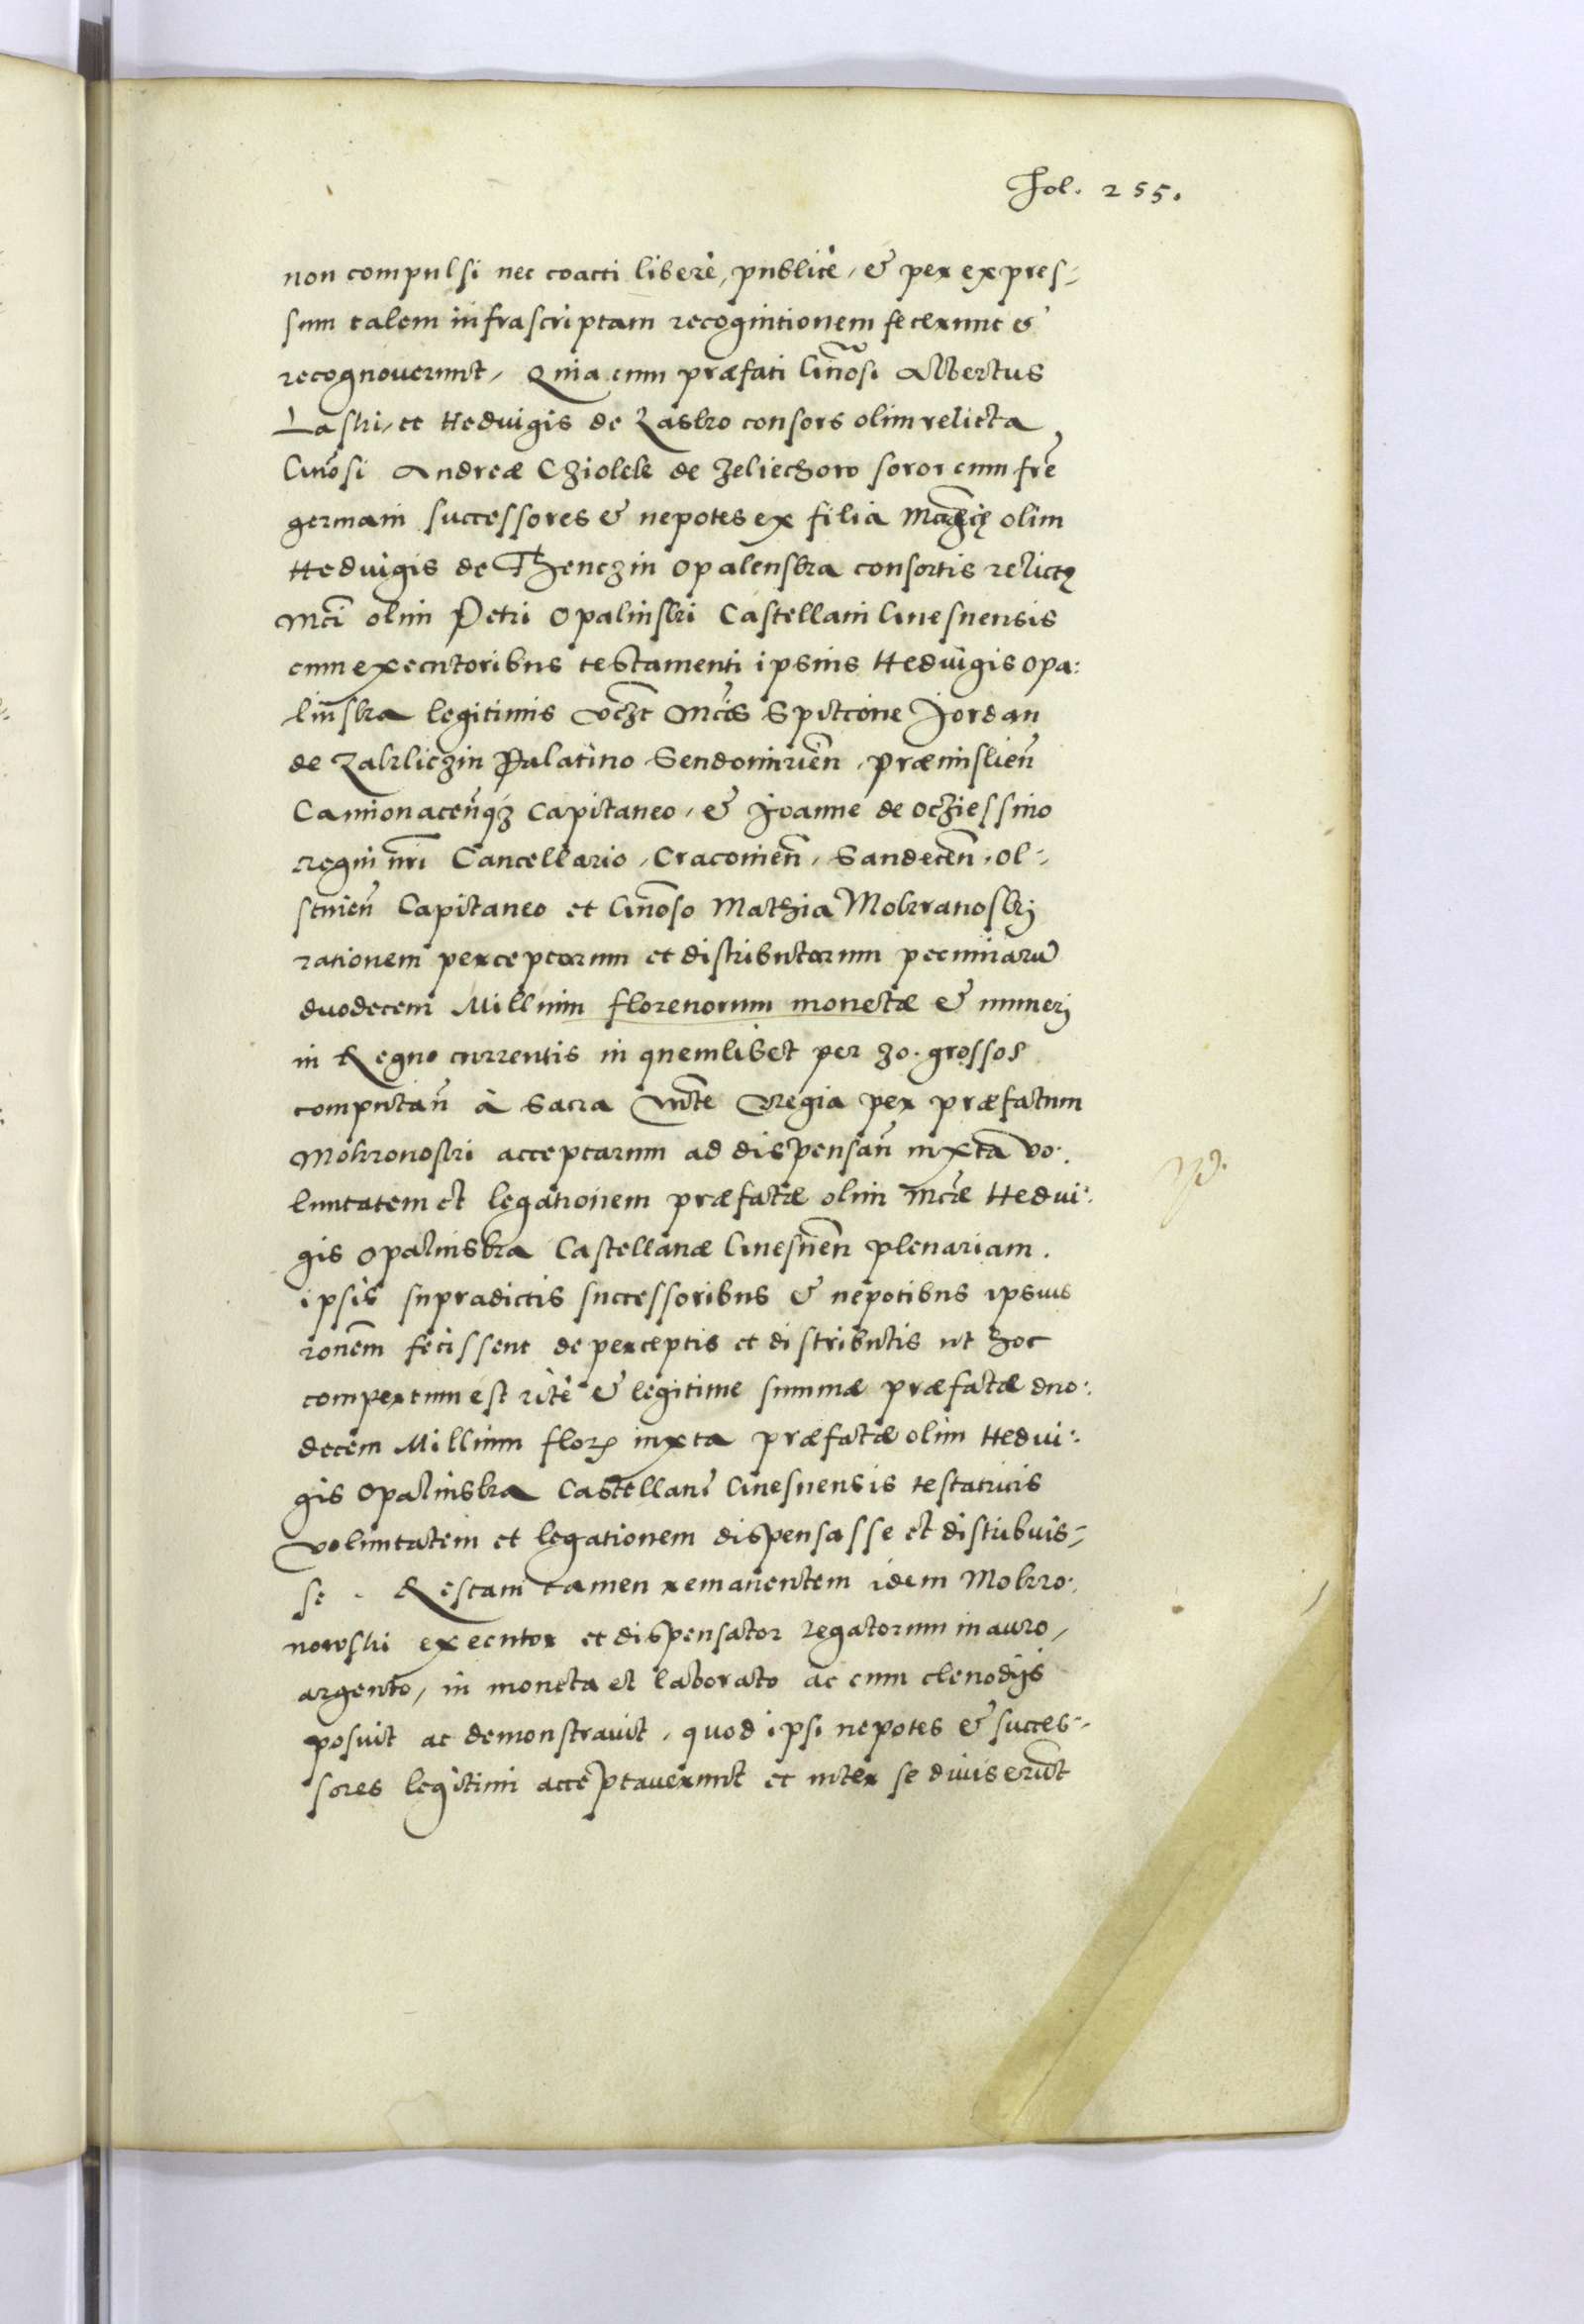 Fol. 255.
non compulsi nec coacti liberè, publicè, & per expres-
sum talem infrascriptam recognitionem fecerunt &
recognoverunt, Quia cum præfati Gnosi Albertus
Laski, et Hedvigis de Lasko consors olim relicta
Gnosi Andreæ Cziolek de Zeliechow soror cum fre
germani successores & nepotes ex filia olim
Hedvigis de Thenczin Opalenska consortis relictę
Mci olim Petri Opalinski Castellani Gnesnensis
cum executoribus testamenti ipsius Hedvigis Opa:
linska legitimis vdzt Mcis Spitcone Jordan
de Zakliczin Palatino Sendomirien, præmislien
Camionacenqz Capitaneo, & Joanne de Ocziessino
regni nri Cancellario, Cracovien, Sandecen, Ol-
stinen Capitaneo et Gnoso Mathia Mokranoskj
rationem perceptorum et distributorum pecuniarū
duodecem Millium florenorum monetæ & numerj
in Regno currentis in quemlibet per 30. grossos
computan à Sacra Mte Regia per præfatum
Mokronoski acceptarum ad dispensan iuxta vo:
luntatem et legationem præfatæ olim Mcæ Hedvi:
gis Opalinska Castellanæ Gnesnen plenariam.
ipsis supradictis successoribus & nepotibus ipsius
ronem fecissent de perceptis et distributis ut hoc
compertum est ritè & legitime summæ præfatæ duo:
decem Millium flor iuxta præfatæ olim Hedvi:
gis Opalinska Castellanę Gnesnensis testatricis
voluntatem et legationem dispensasse et distribuis-
se. Restam tamen remanentem idem Mokro:
nowski executor et dispensator legatorum in auro,
argento, in moneta et laborato ac cum clenodijs
posuit ac demonstravit, quod ipsi nepotes & succes-
sores legitimi acceptaverunt et inter se diviserunt